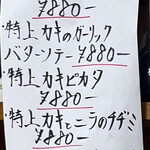 ¥880-
・特上カキのガーリック
バターソテー ¥880-
・特上カキピカタ
¥880-
・特上カキとニラのチヂミ
¥880-